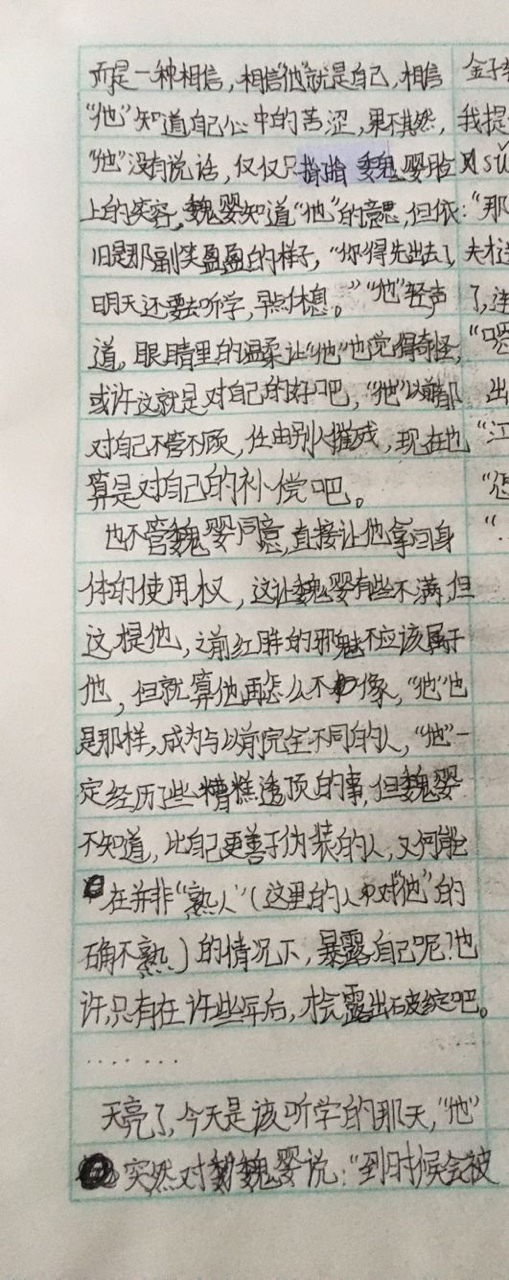 而是一种相信，相信“他”就是自己，相信
“他”知道自己心中的苦涩，果不其然，
“他”没有说话，仅仅只 魏婴脸
上的笑容，魏婴知道“他”的意思，但依
旧是那副笑盈盈的样子，“你得先出去了，
明天还要去听学，早点休息。”“他”轻声
道，眼睛里的温柔让“他”也觉得奇怪，
或许这就是对自己的好吧，“他”以前都
对自己不管不顾，任由别人摧残，现在也
算是对自己的补偿吧。
也不管魏婴同意，直接让他拿回身
体的使用权，这让魏婴有些不满，但
这提他，之前红眸的邪魅不应该属于
他，但就算他再怎么不像，“他”也
是那样，成为与以前完全不同的人，“他”一
定经历了些糟糕透顶的事，但魏婴
不知道，比自己更善于伪装的人，又何能
在并非“熟人”（这里的人对“他”的
确不熟）的情况下，暴露自己呢？也
许，只有在许些年后，才会露出破绽吧。
.......
天亮了，今天是该听学的那天，“他”
突然对魏婴说：“到时候会被
金子
我提
：“那
夫才
了，
“嗯
出
“江
“怎
“.